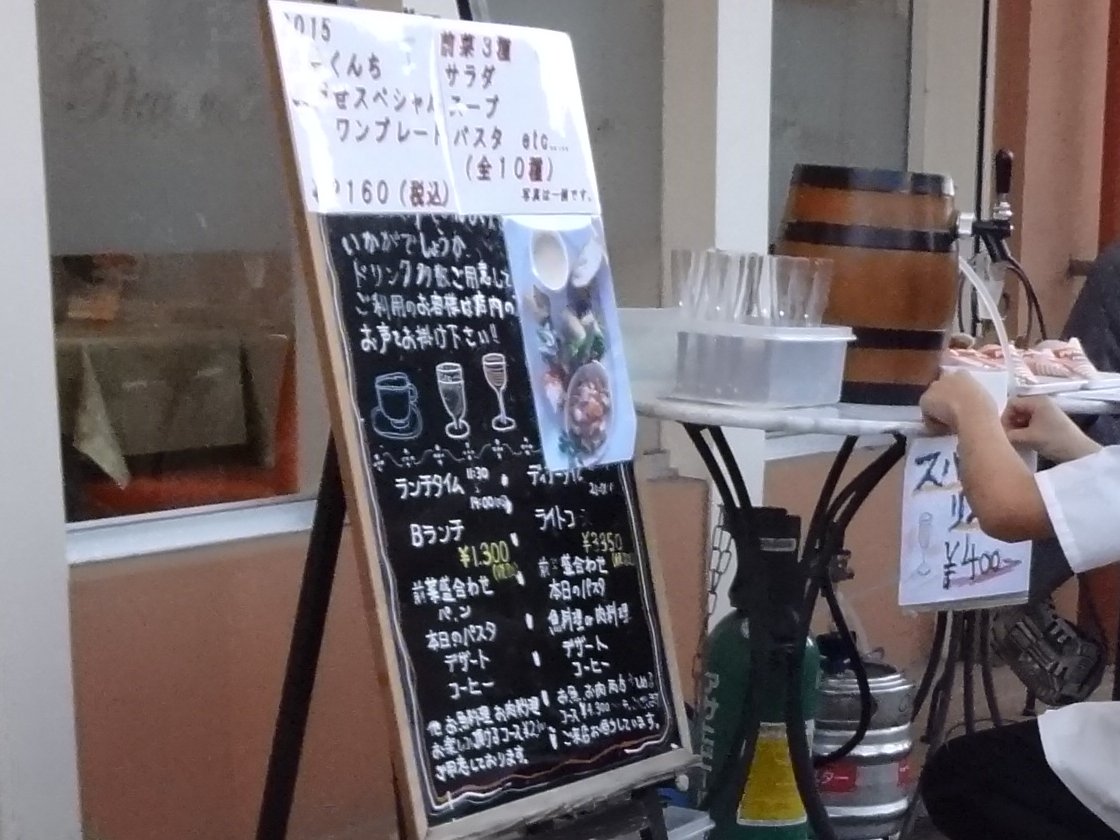 2015
くんち
スペシャル
ワンプレート
160(税込)
前菜3種
サラダ
スープ
パスタ etc.....
(全10種)
写真は一例です。
いかがでしょうか。
ドリンク多数ご用意して
ご利用のお客様は店内の
お声をお掛け下さい!
ランチタイム 11:30
14:00
Bランチ
¥1,300
前菜盛合わせ
パン
本日のパスタ
デザート
コーヒー
他 お魚料理 お肉料理
お楽しみ頂けるコース¥2
ご用意しております。
ライトコース
¥3350
前菜盛合わせ
本日のパスタ
魚料理or肉料理
デザート
コーヒー
お魚、お肉両方
コース¥4,300〜
ご来店お待ちしています。
¥400